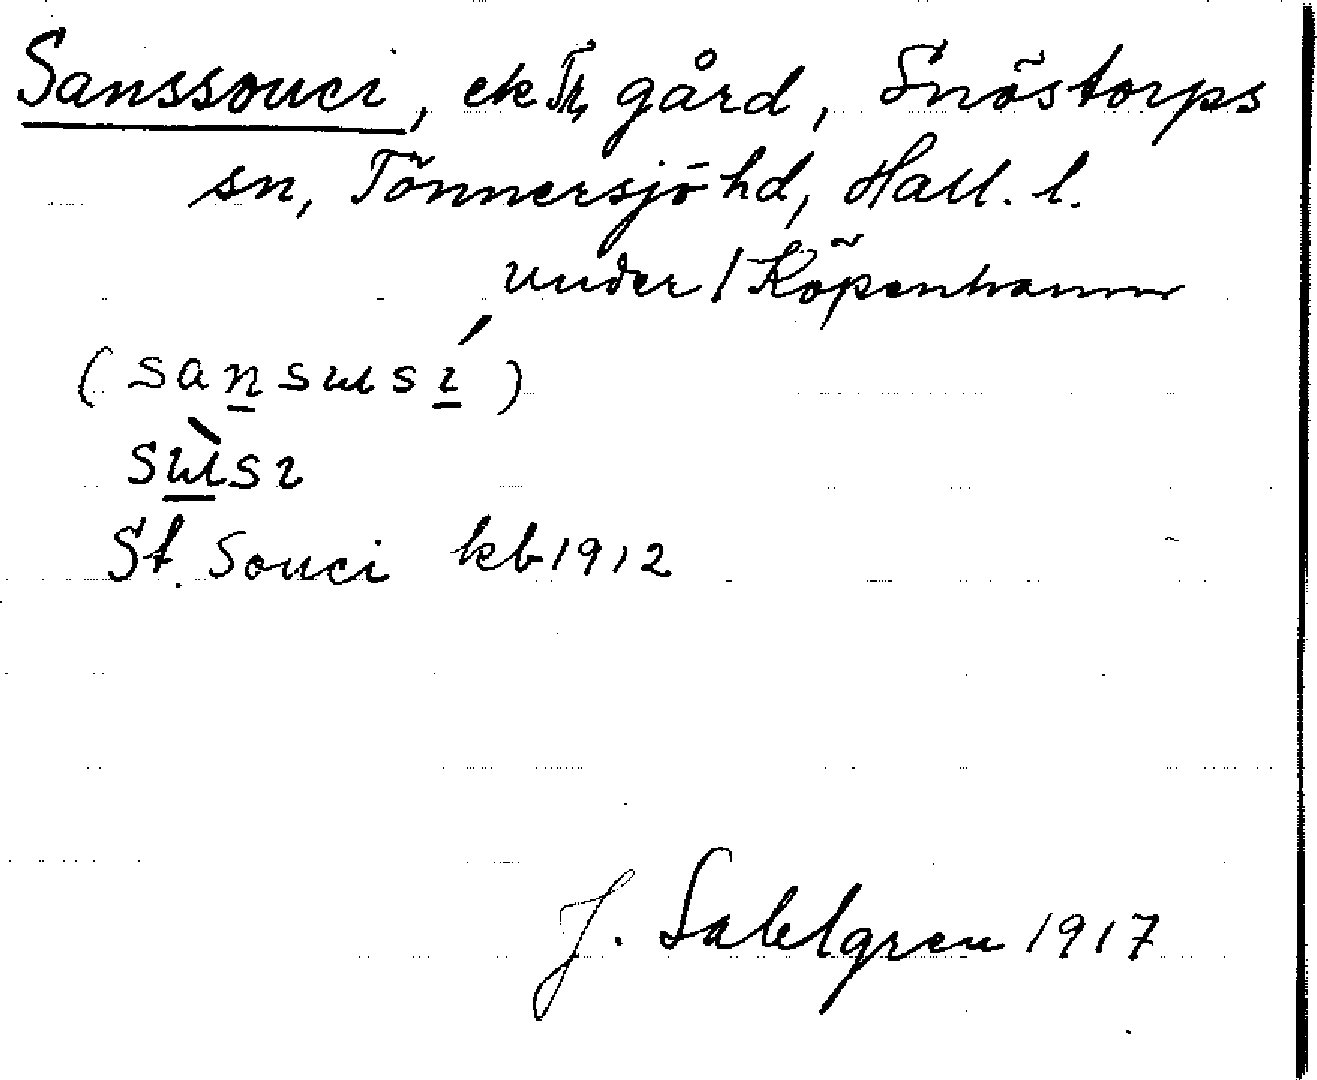 Sanssouci, ek gård, Snöstorps
sn, Tönnersjö hd, Hall. l.
under 1 Köpenhamn
(sansɯsı)
sɯsı
St. Souci kb 1912
J. Sahlgren 1917